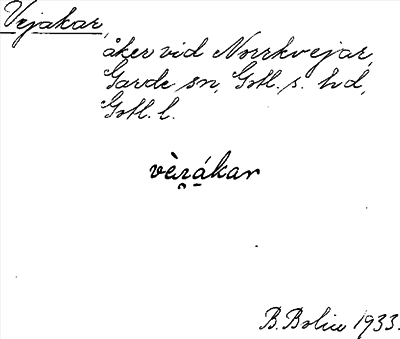 Vejakar,
åker vid Norrkvejar,
Garde sn, Gotl. s. hd,
Gotl. l.
vèrákar
B. Bolin 1933.